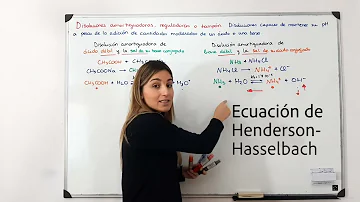 Disoluciones amortiguadoras, reguladoras o tampón. Disoluciones capaces de mantener su pH
a pesar de la adición de cantidades moderadas de un ácido o una base
Disolución amortiguadora de
ácido débil y la sal de su base conjugada
CH₃COOH + CH₃
CH₃COONa → CH₃COO
CH₃COOH + H₂O
H₃O⁺
Disolución amortiguadora de
base débil y la sal de su ácido conjugado
NH₃ + NH₄Cl
NH₄Cl → NH₄⁺ + Cl⁻
NH₃ + H₂O ⇌ NH₄⁺ + OH⁻
Ecuación de
Henderson-
Hasselbach